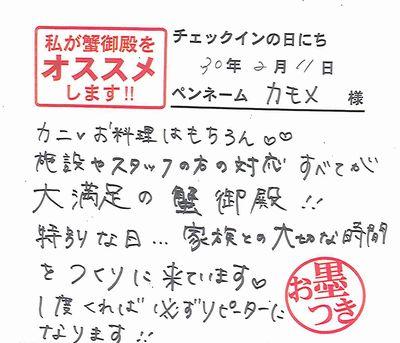 私が蟹御殿を
オススメ
します!!
チェックインの日にち
30年2月11日
ペンネーム カモメ 様
カニ♥お料理はもちろん♡♡
施設やスタッフの方の対応 すべてが
大満足の 蟹御殿!!
特別な日… 家族との大切な時間
をつくりに来ています♡
1度くれば必ずリピーターに
なります!!
お墨つき